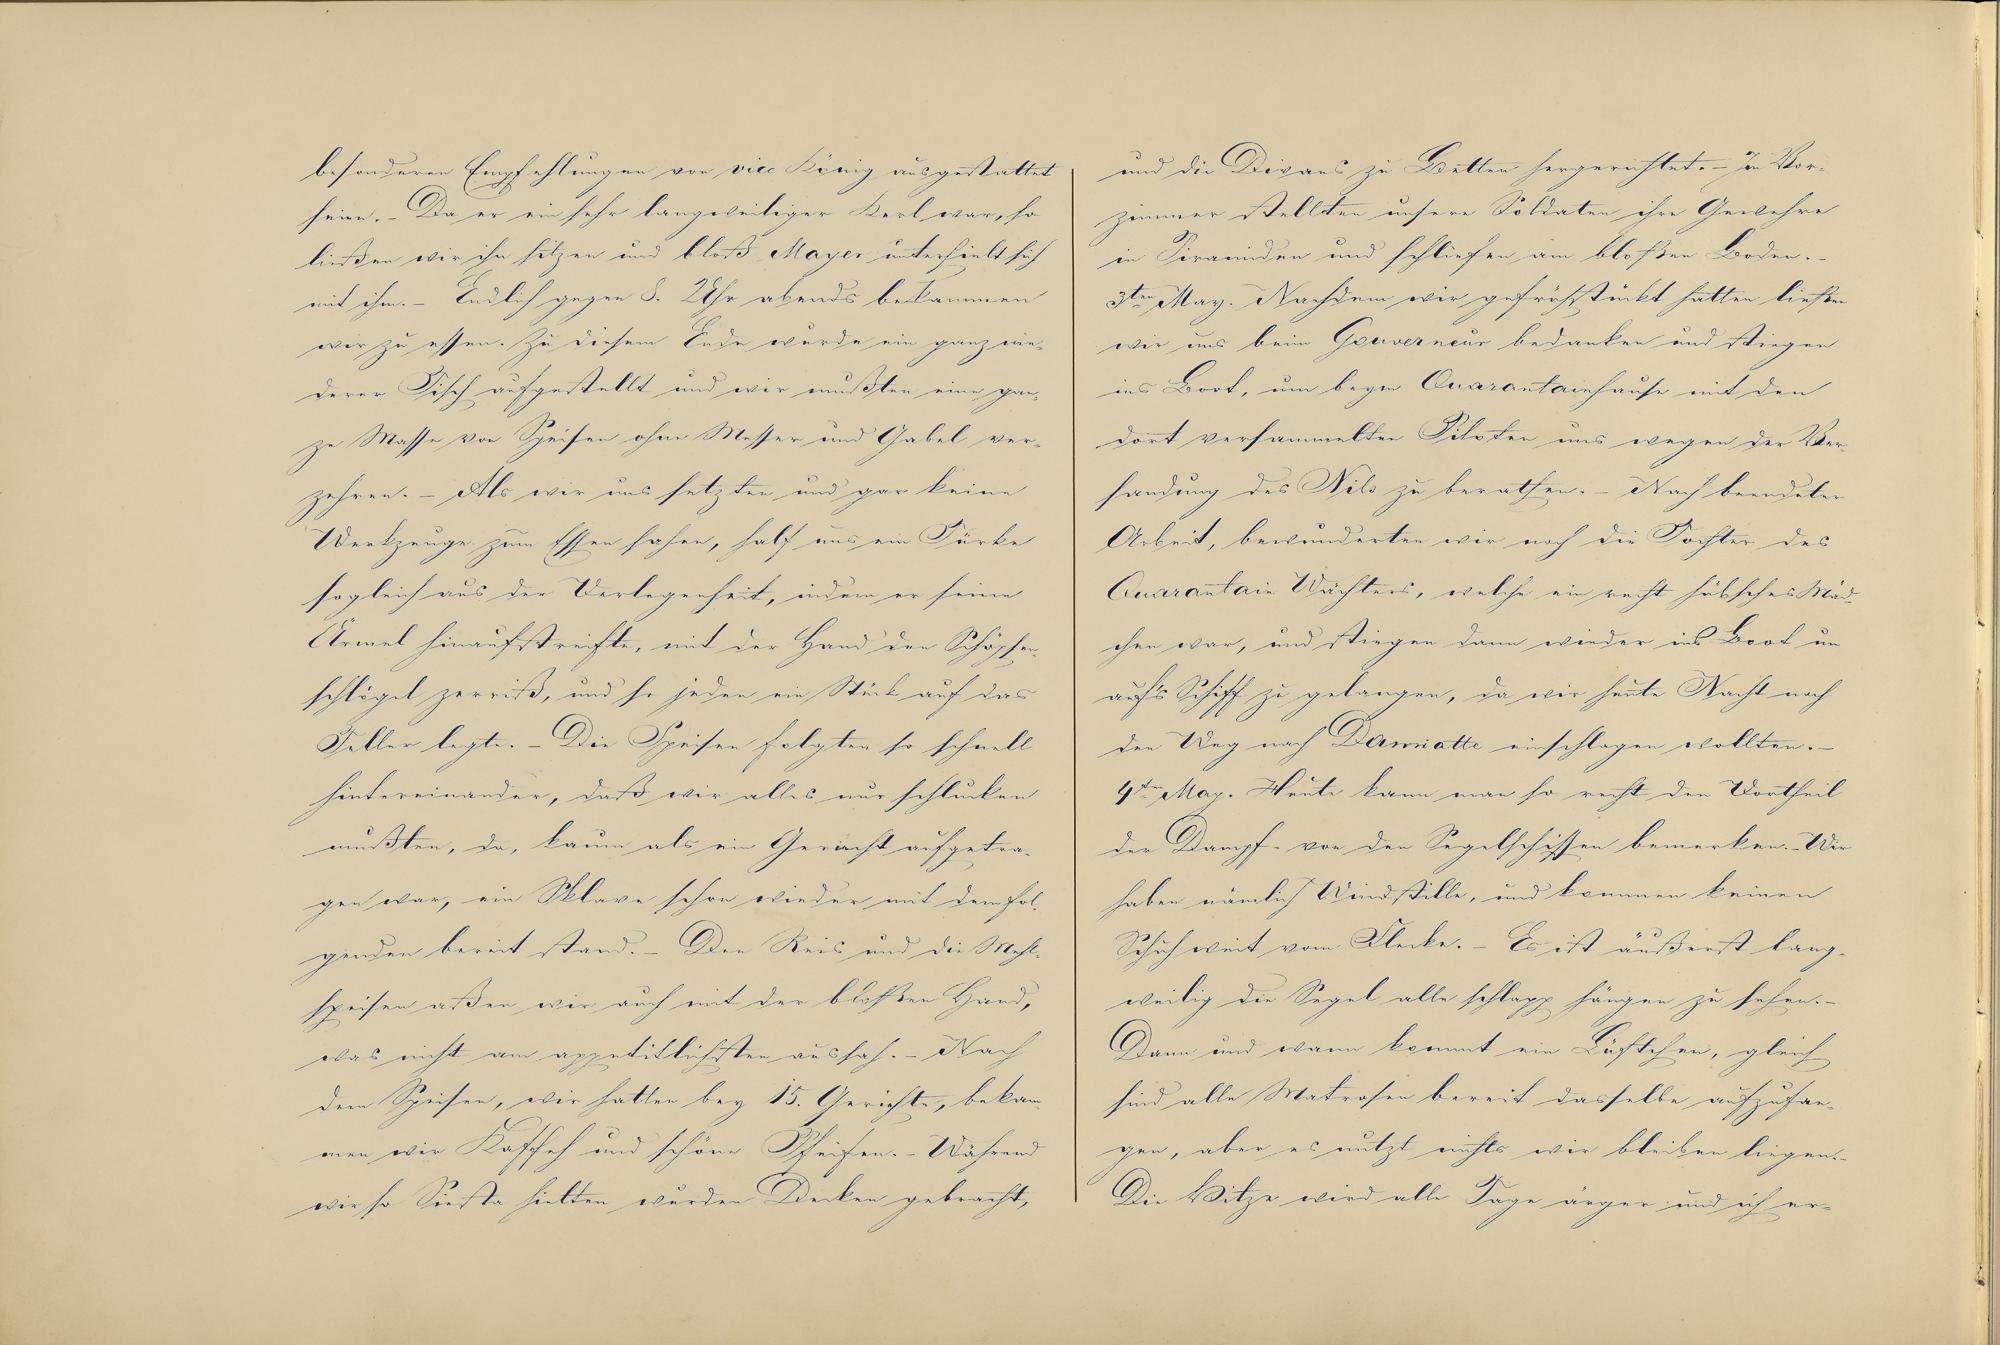 besonderen Empfehlungen von vice König ausgestattet
seien. – Da er ein sehr langweiliger Kerl war, so
ließen wir ihn sitzen und bloß Mayer unterhielt sich
mit ihm. – Endlich gegen 8. Uhr abends bekammen
wir zu essen. Zu diesem Ende wurde ein ganz nie-
derer Tisch aufgestellt und wir mußten eine gan-
ze Masse von Speisen ohne Messer und Gabel ver-
zehren. – Als wir uns setzten und gar keine
Werkzeuge zum Essen sahen, half uns ein Türke
sogleich aus der Verlegenheit, indem er seine
Ärmel hinaufstreifte, mit der Hand den Schöpsen-
schlögel zerriß, und so jeden ein Stück auf das
Teller legte. – Die Speisen folgten so schnell
hintereinander, daß wir alles nur schlucken
mußten, da, kaum als ein Gericht aufgetra-
gen war, ein Sklave schon wieder mit dem fol-
genden bereit stand. – Den Reis und die Mehl-
speisen aßen wir auch mit der bloßen Hand,
was nicht am appetitlichsten aussah. – Nach
dem Speisen, wir hatten bey 15. Gerichte, bekam-
men wir Kaffeh und schöne Pfeifen. – Während
wir so Siesta hielten wurden Decken gebracht,
und die Divans zu Betten hergerichtet. – Im Vor-
zimmer stellten unsere Soldaten ihre Gewehre
in Piramiden und schliefen am bloßen Boden. –
3ten May. Nachdem wir gefrühstückt hatten ließen
wir uns beim Gouverneur bedanken und stiegen
ins Boot, um beym Quarantainhause mit den
dort versammelten Piloten uns wegen der Ver-
sandung des Nils zu berathen. – Nach beendeter
Arbeit, bewunderten wir noch die Tochter des
Quarantain Wächters, welche ein recht hübsches Mäd-
chen war, und stiegen dann wieder ins Boot um
aufs Schiff zu gelangen, da wir heute Nacht noch
den Weg nach Damiatte einschlagen wollten. –
4ten May. Heute kann man so recht den Vortheil
der Dampf- von den Segelschiffen bemerken. – Wir
haben nämlich Windstille, und kommen keinen
Schuh weit vom Flecke. – Es ist äußerst lang-
weilig die Segel alle schlapp hängen zu sehen. –
Dann und wann kommt ein Lüftchen, gleich
sind alle Matrosen bereit dasselbe aufzufan-
gen, aber es nutzt nichts wir bleiben liegen. –
Die Hitze wird alle Tage ärger und ich er-